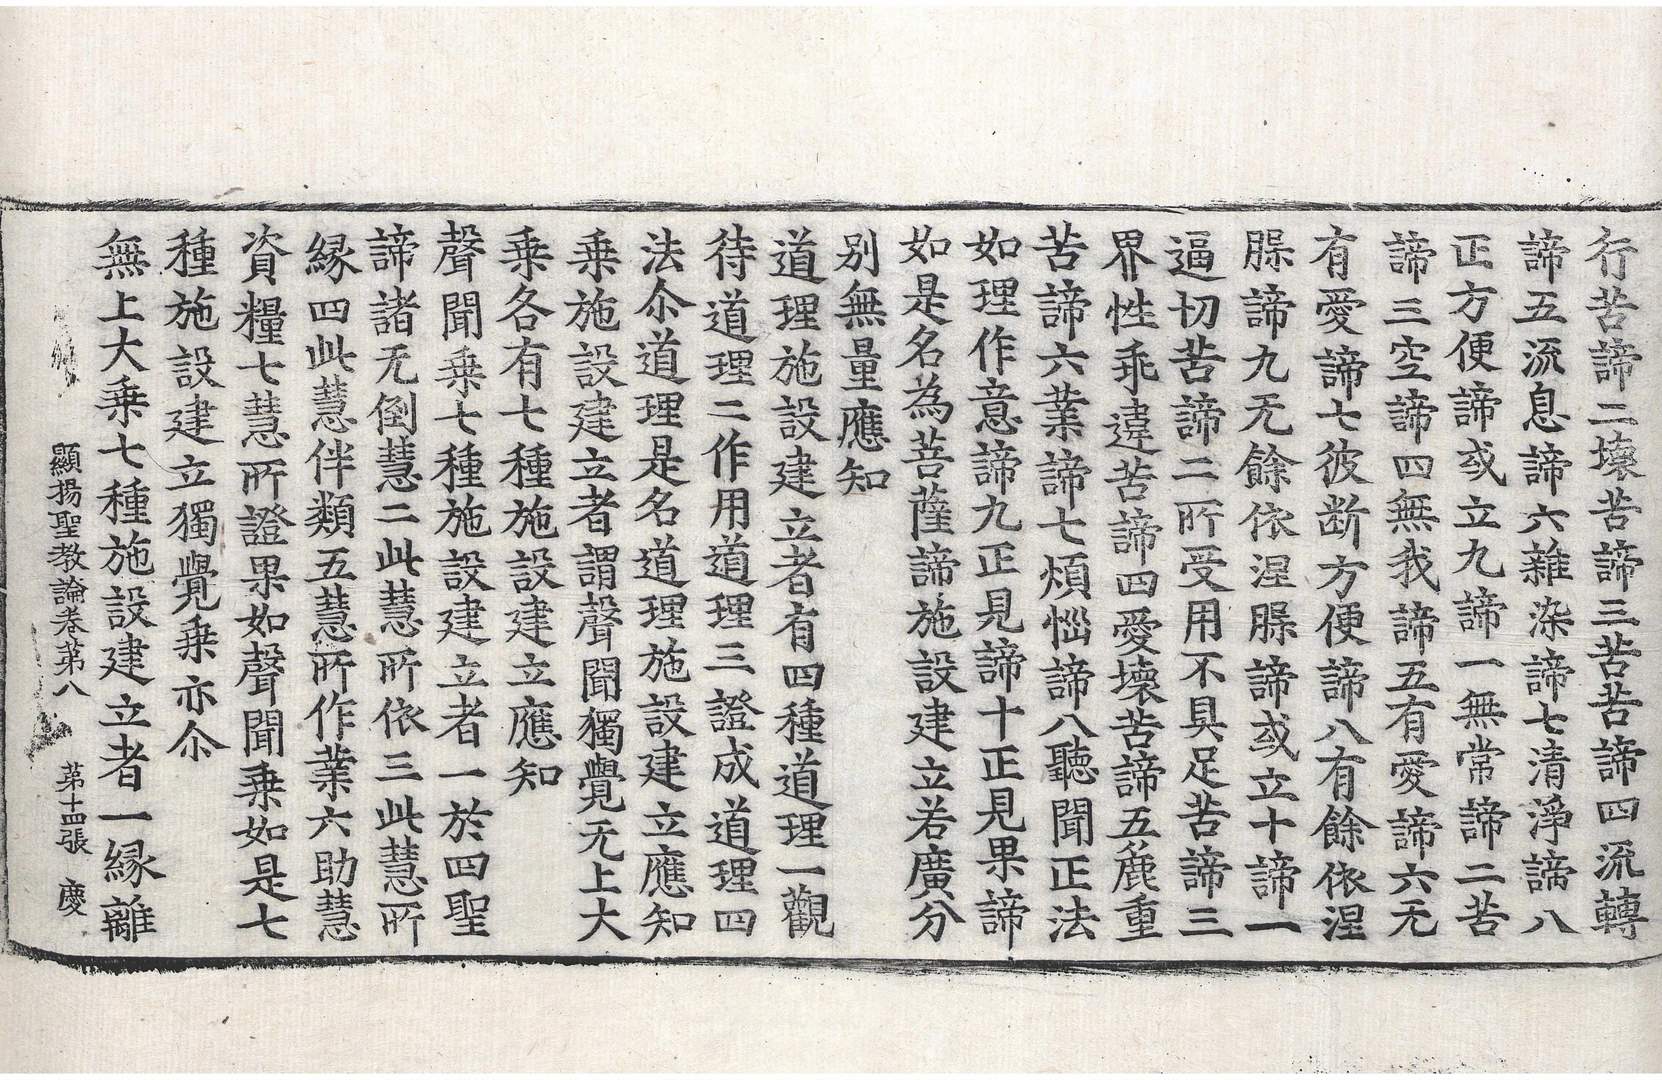 行苦諦二壞苦諦三苦苦諦四流轉
諦五流息諦六雜染諦七清淨諦八
正方便諦或立九諦一無常諦二苦
諦三空諦四無我諦五有愛諦六无
有愛諦七彼断方便諦八有餘依涅
脲諦九无餘依涅脲諦或立十諦一
逼切苦諦二所受用不具足苦諦三
界性乖違苦諦四愛壞苦諦五麁重
苦諦六業諦七煩惱諦八聽聞正法
如理作意諦九正見諦十正見果諦
如是名為菩薩諦施設建立若廣分
别無量應知
道理施設建立者有四種道理一觀
待道理二作用道理三證成道理四
法尒道理是名道理施設建立應知
乗施設建立者謂聲聞獨覺无上大
乗各有七種施設建立應知
聲聞乗七種施設建立者一於四聖
諦諸无倒慧二此慧所依三此慧所
縁四此慧伴類五慧所作業六助慧
資糧七慧所證果如聲聞乗如是七
種施設建立獨覺乗亦尒
無上大乗七種施設建立者一縁離
顯揚聖教論卷苐八　苐十四張　慶